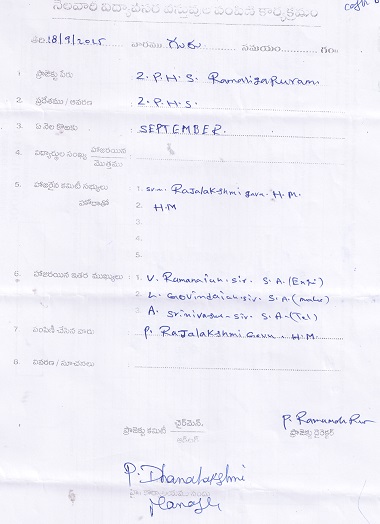 నెలవారి విద్యావసర వస్తువుల పంపిణీ కార్యక్రమం
తేది: 18/9/2025 వారము గురు సమయం గం
1 ప్రాజెక్టు పేరు Z. P. H. S. Ramalingapuram
2. ప్రదేశము / ఆవరణ Z. P. H. S.
3. ఏ నెల కొఱకు SEPTEMBER.
4. విద్యార్థుల సంఖ్య హాజరయిన / మొత్తము
5. హాజరైన కమిటీ సభ్యులు 1. Smt. Rajalakshmi garu. H. M.
హోదాతో 2. H M
3.
4.
5.
6. హాజరయిన ఇతర ముఖ్యులు : 1. V. Ramanaiah. Sir. S. A.
2. Govindaiah. Sir. S. A.
3. A. Srinivasu - Sir. S. A. (Tel)
7 పంపిణీ చేసిన వారు P. Rajalakshmi Garu. H. M.
8 వివరణ / సూచనలు
ప్రాజెక్టు కమిటీ ఛైర్మెన్.
ప్రాజెక్టు డైరెక్టర్
P. Dhanalakshmi
Manager